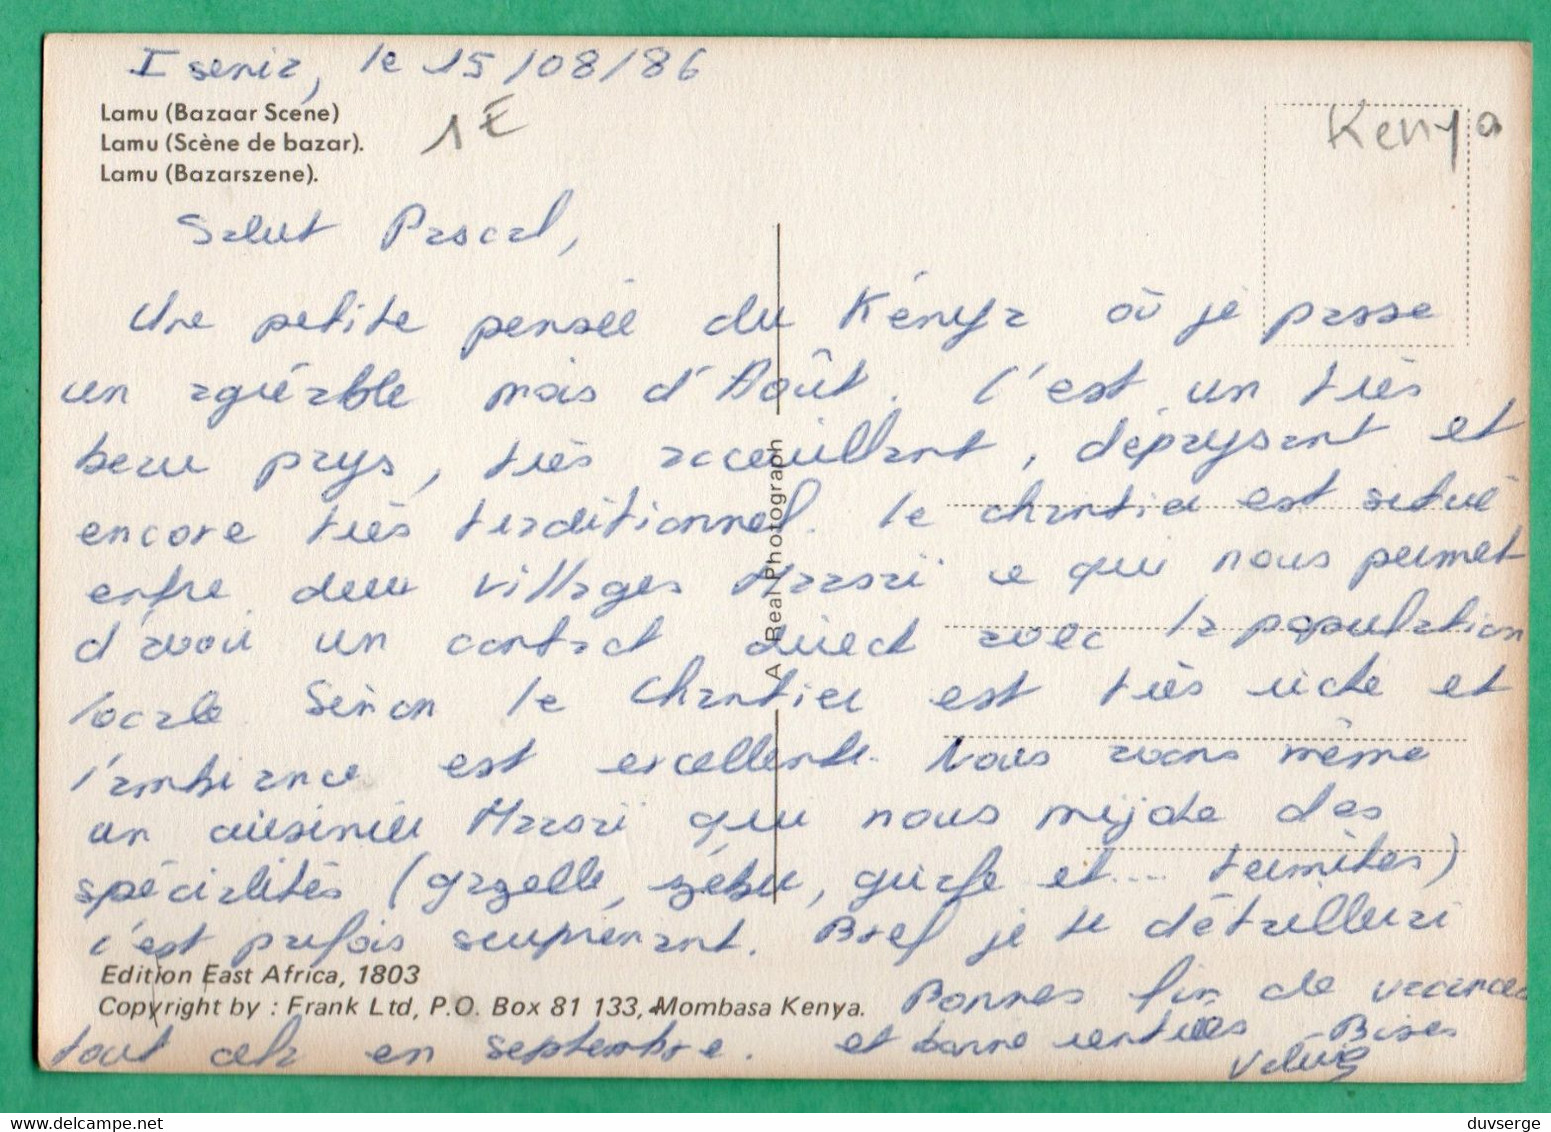 Isenia, le 15/08/86
Lamu (Bazaar Scene)
Lamu (Scène de bazar).
Lamu (Bazarszene).
1€
Kenya
Salut Pascal,
Une petite pensée du Kénya où je passe
un agréable mois d'Août. C'est un très
beau pays, très accueillant, dépaysant et
encore très traditionnel. Le chantier est situé
entre deux villages Maasaï ce qui nous permet
d'avoir un contact direct avec la population
locale. Sinon le chantier est très riche et
l'ambiance est excellente. Nous avons même
un cuisinier Maasaï qui nous mijote des
spécialités (gazelle, zébu, girafe et.... termites)
c'est parfois surprenant. Bref je te détaillerai
tout cela en septembre.
Bonnes fin de vacances
et bonne rentrée - Bises
Valérie
A Real Photograph
Edition East Africa, 1803
Copyright by : Frank Ltd, P.O. Box 81 133, Mombasa Kenya.
delcampe.net
duvserge